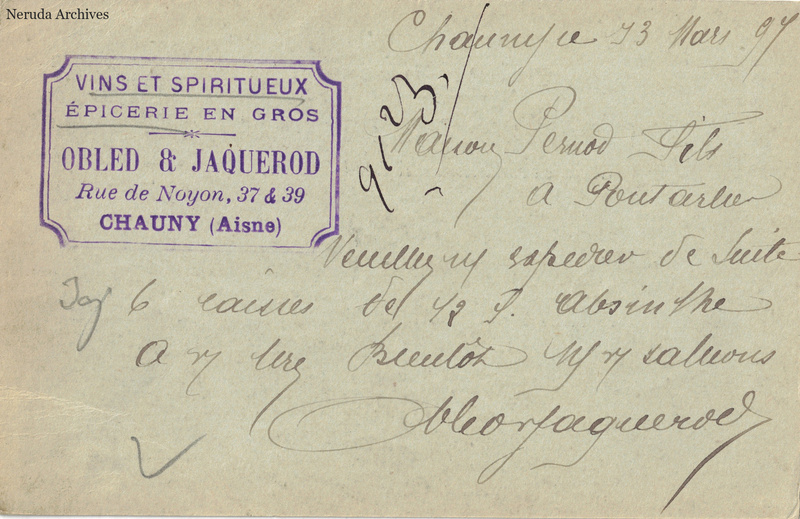 Neruda Archives
VINS ET SPIRITUEUX
ÉPICERIE EN GROS
OBLED & JAQUEROD
Rue de Noyon, 37 & 39
CHAUNY (Aisne)
Chauny le 13 Mars 97
9123
Maison Pernod Fils
a Pontarlier
Veuillez m expedier de Suite
6 caisses de 12 L. Absinthe
a v/ lire Bientôt v/ saluons
Jaquerod